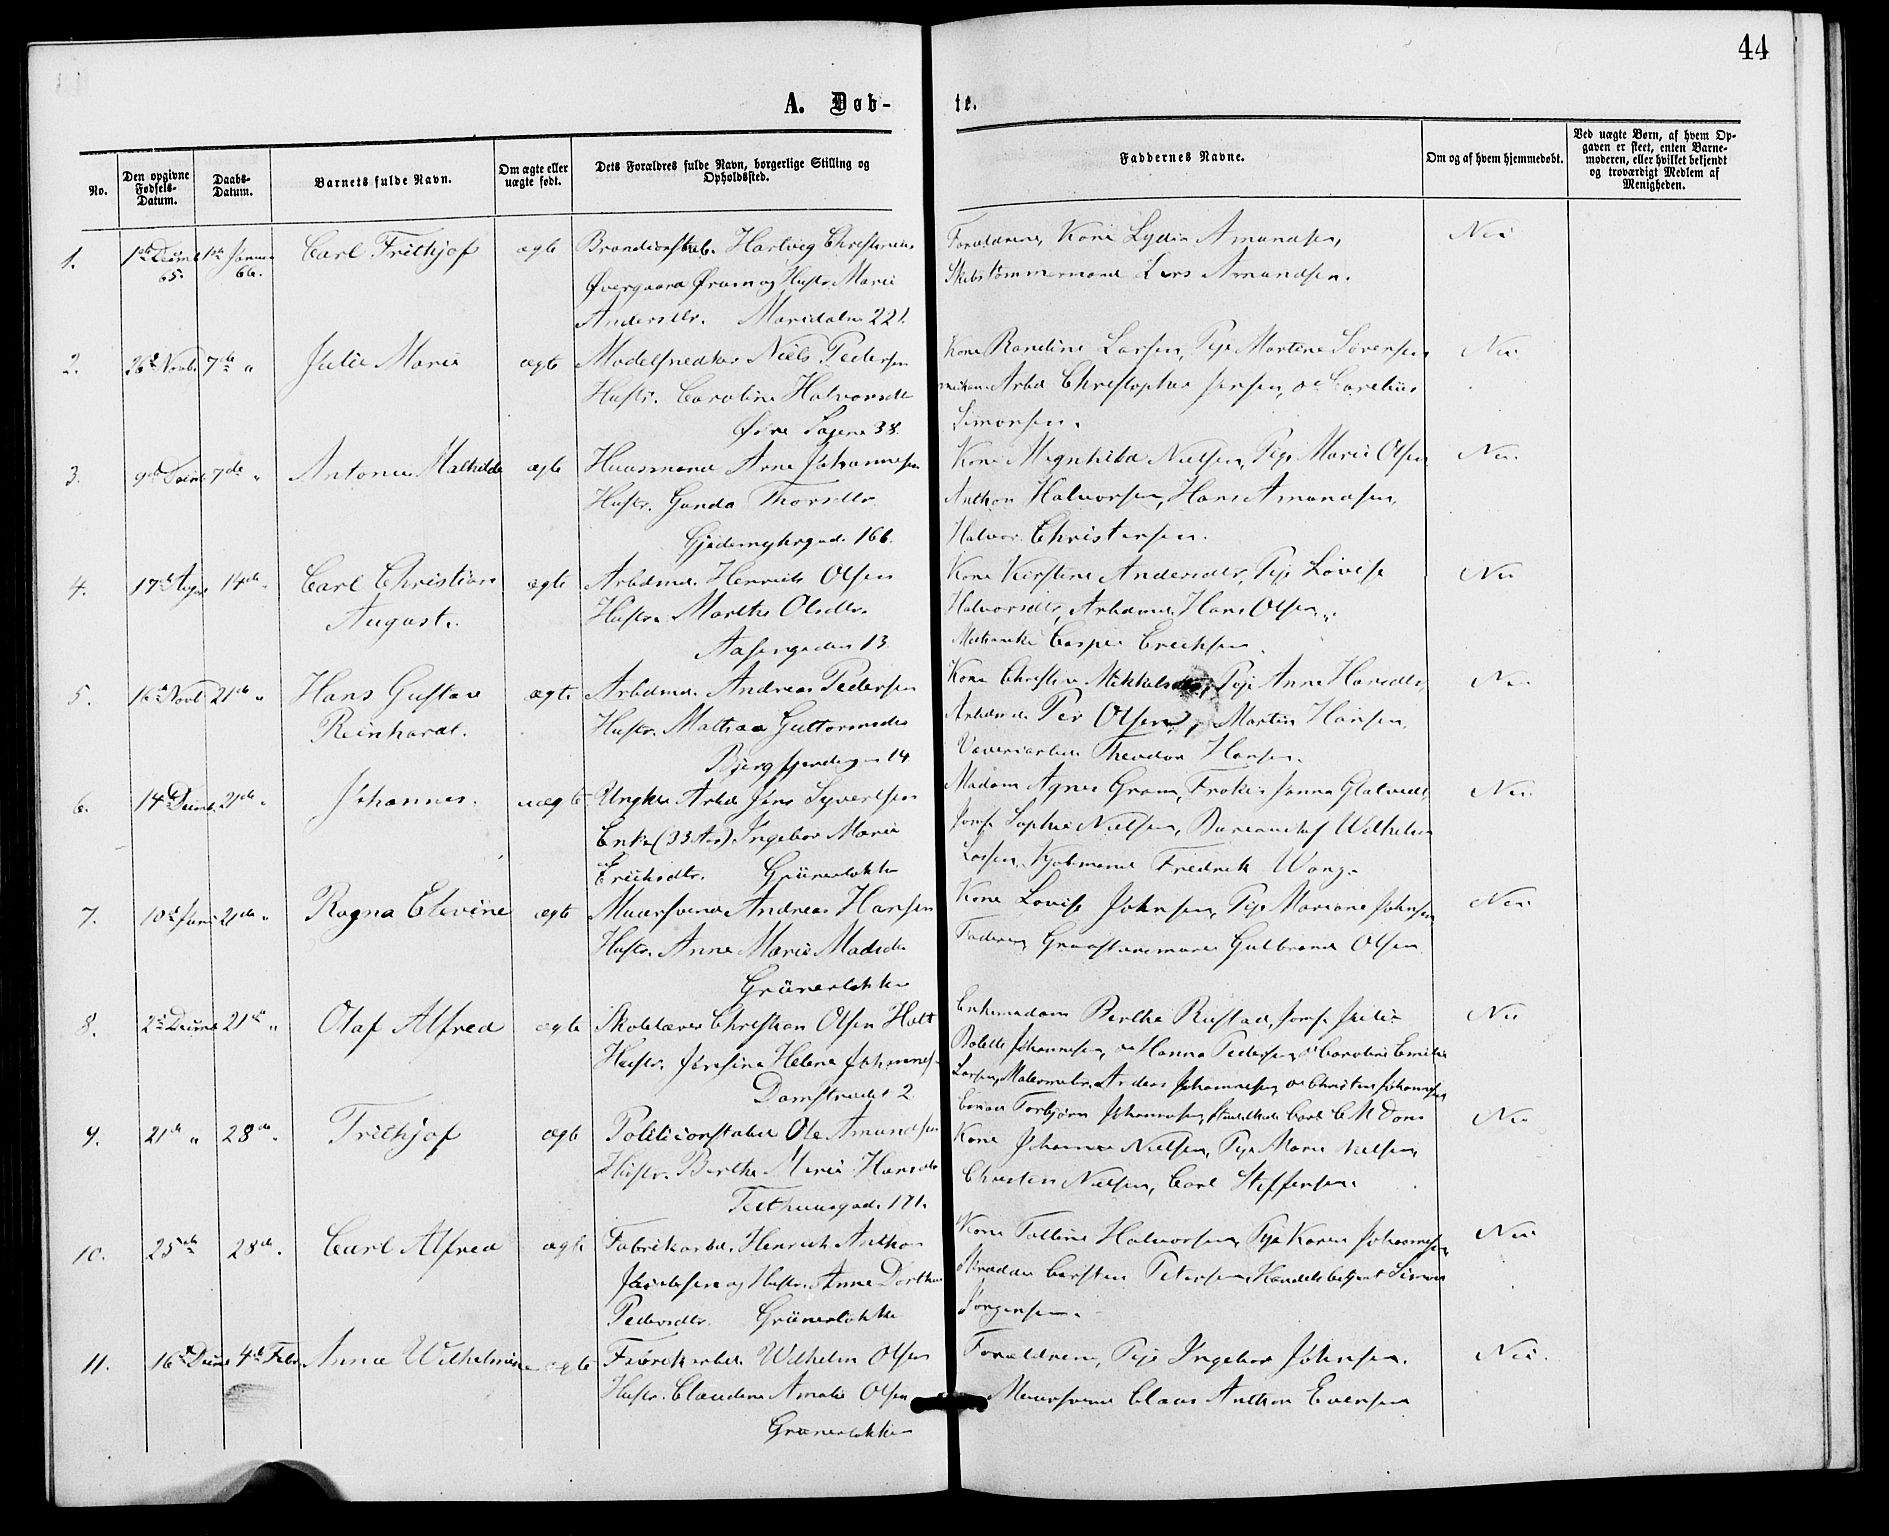 44
A. Døb-
te.
No.
Den opgivne Fødsels-Datum.
Daabs-Datum.
Barnets fulde Navn.
Om ægte eller uægte født.
Dets Forældres fulde Navn, borgerlige Stilling og Opholdssted.
Faddernes Navne.
Om og af hvem hjemmedøbt.
Ved uægte Børn, af hvem Op-
gaven er skeet, enten Barne-
moderen, eller hvilket bekjendt
og troværdigt Medlem af
Menigheden.
1. 65. 66. Carl Frithjof ægte Hartvig
Øvergaard Ørum og Hustr. Marie
Andersdtr. Maridalen 221.
Forældrene, Kone Lydia Amundsen, Nei
Skibstømmermand Lars Amundsen.
2. 26 Novbr 7de " Julie Marie ægte Modelsnedker Niels Pedersen
Hustr. Caroline Halvorsdtr
Øvre 38.
Kone Randine Larsen, Pige Martene Sørensen Nei
Arbd Christopher Jensen, Carelius
Simonsen.
3. 9de 7de " Antonie Mathilde ægte Huusmand Arne Johannesen
Hustr. Gunda Thorsdtr.
166.
Kone Magnhild Nielsen, Pige Marie Olsen Nei
Anthon Halvorsen, Hans Amundsen,
Halvor Christensen.
4. 17 14de " Carl Christian ægte Arbdmd. Henrik Olsen
August. Hustr. Marthe Olsdtr.
13
Kone Kirstine Andersdtr, Pige Lovise Nei
Halvorsdtr, Arbdmd. Hans Olsen,
Casper Eriksen.
5. 16 Novb 21de " Hans Gustav ægte Arbdmd. Andreas Pedersen
Reinhardt. Hustr. Mathea Guttormsdtr
14
Kone Christine Mikkelsdtr, Pige Anne Hansdtr, Nei
Arbdmd. Per Olsen, Martin Hansen,
Theodor Hansen.
6. 14 21de " Johannes. uægte Ungkar Arbd Jens Syvertsen
Enke (33 Aar) Ingebor Marie
Eriksdtr. Grünerløkken
Madam Agnes Gram, Frøken Janna Nei
Jomf. Sophie Nielsen, Wilhelm
Larsen, Kjøbmand Fredrik Wang.
7. 10 Janr 21de " Ragna Elevine ægte Muursvend Andreas Hansen
Hustr. Anne Marie Madsdtr
Grünerløkken
Kone Lovise Johnsen, Pige Mariane Johnsen Nei
Faderen, Gulbrand Olsen
8. 2 21de " Olaf Alfred ægte Skolelærer Christian Olsen Holt
Hustr. Josefine Helene
Damstrædet 2
Enkemadam Berthe Rustad, Jomf. Julie Nei
Bolette Johannesen, Hanna Pedersen, Caroline Emilie
Larsen, Malermstr. Anders Johannesen, Christen Johannesen
Torbjørn Johannesen, Carl
9. 21de " 28de " Frithjof ægte Politiconstabel Ole Amundsen
Hustr. Berthe Marie Hansdtr
171.
Kone Johanne Nielsen, Pige Marie Nielsen, Nei
Christen Nielsen, Carl Steffensen.
10. 25de 28de " Carl Alfred ægte Fabrikarbd. Henrik Anthon
Jacobsen og Hustr. Anne Dorthea
Pedersdtr. Grünerløkken
Kone Halvorsen, Pige Karen Johannesen Nei
Skrædder Carsten Petersen, Handelsbetjent Simon
Jørgensen.
11. 16 4de Febr Anna Wilhelmine ægte Fabrikarbd. Wilhelm Olsen
Hustr. Claudine Amalie Olsen
Grünerløkken
Forældrene, Pige Ingebor Johnsen. Nei.
Muursvend Claus Anthon Evensen